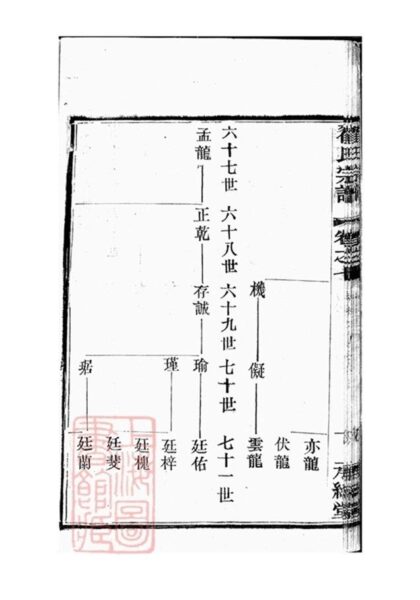 氏宗譜 卷之
亦龍
伏龍
機 儗 雲龍
六十七世 六十八世 六十九世 七十世 七十一世
孟龍 正乾 存誠 瑜 廷佑
瑾 廷梓
廷槐
廷斐
廷蘭
上海圖書館藏